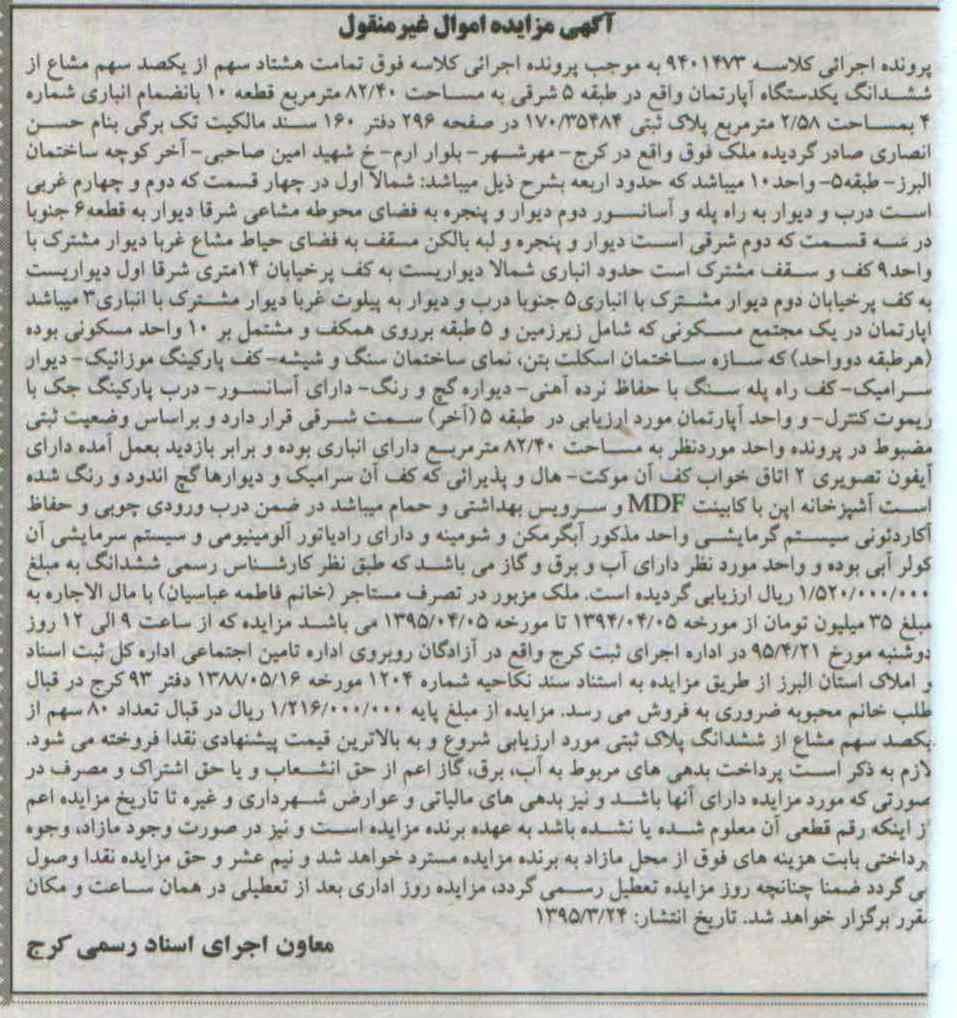 آگهی مزایده اموال غیرمنقول
پرونده اجرائی کلاسه ۹۴۰۱۴۷۳ به موجب پرونده اجرائی کلاسه فوق تمامت هشتاد سهم از یکصد سهم مشاع از
ششدانگ یکدستگاه آپارتمان واقع در طبقه ۵ شرقی به مساحت ۸۲/۴۰ مترمربع قطعه ۱۰ بانضمام انباری شماره
۴ بمساحت ۲/۵۸ مترمربع پلاک ثبتی ۱۷۰/۳۵۴۸۴ در صفحه ۲۹۶ دفتر ۱۶۰ سند مالکیت تک برگی بنام حسن
انصاری صادر گردیده ملک فوق واقع در کرج- مهرشهر- بلوار ارم-خ شهید امین صاحبی- آخر کوچه ساختمان
البرز- طبقه۵- واحد۱۰ میباشد که حدود اربعه بشرح ذیل میباشد: شمالا اول در چهار قسمت که دوم و چهارم غربی
است درب و دیوار به راه پله و آسانسور دوم دیوار و پنجره به فضای محوطه مشاعی شرقا دیوار به قطعه۶ جنوبا
در سه قسمت که دوم شرقی است دیوار و پنجره و لبه بالکن مسقف به فضای حیاط مشاع غربا دیوار مشترک با
واحد۹ کف و سقف مشترک است حدود انباری شمالا دیواریست به کف پرخیابان ۱۴متری شرقا اول دیواریست
به کف پرخیابان دوم دیوار مشترک با انباری۵ جنوبا درب و دیوار به پیلوت غربا دیوار مشترک با انباری۳ میباشد
اپارتمان در یک مجتمع مسکونی که شامل زیرزمین و ۵ طبقه برروی همکف و مشتمل بر ۱۰ واحد مسکونی بوده
(هرطبقه دوواحد)که سازه ساختمان اسکلت بتن، نمای ساختمان سنگ و شیشه- کف پارکینگ موزائیک- دیوار
سرامیک- کف راه پله سنگ با حفاظ نرده آهنی- دیواره گچ و رنگ- دارای آسانسور- درب پارکینگ جک با
ریموت کنترل- و واحد آپارتمان مورد ارزیابی در طبقه ۵ (آخر) سمت شرقی قرار دارد و براساس وضعیت ثبتی
مضبوط در پرونده واحد موردنظر به مساحت ۸۲/۴۰ مترمربع دارای انباری بوده و برابر بازدید بعمل آمده دارای
آیفون تصویری ۲ اتاق خواب کف آن موکت- هال و پذیرائی که کف آن سرامیک و دیوارها گچ اندود و رنگ شده
است آشپزخانه اپن با کابینت MDF و سرویس بهداشتی و حمام میباشد در ضمن درب ورودی چوبی و حفاظ
آکاردئونی سیستم گرمایشی واحد مذکور آبگرمکن و شومینه و دارای رادیاتور آلومینیومی و سیستم سرمایشی آن
کولر آبی بوده و واحد مورد نظر دارای آب و برق و گاز می باشد که طبق نظر کارشناس رسمی ششدانگ به مبلغ
۱/۵۲۰/۰۰۰/۰۰۰ ریال ارزیابی گردیده است. ملک مزبور در تصرف مستاجر (خانم فاطمه عباسیان) با مال الاجاره به
مبلغ ۳۵ میلیون تومان از مورخه ۱۳۹۴/۰۴/۰۵ تا مورخه ۱۳۹۵/۰۴/۰۵ می باشد مزایده که از ساعت ۹ الی ۱۲ روز
دوشنبه مورخ ۹۵/۴/۲۱ در اداره اجرای ثبت کرج واقع در آزادگان روبروی اداره تامین اجتماعی اداره کل ثبت اسناد
و املاک استان البرز از طریق مزایده به استناد سند نکاحیه شماره ۱۲۰۴ مورخه ۱۳۸۸/۰۵/۱۶ دفتر ۹۳ کرج در قبال
طلب خانم محبوبه ضروری به فروش می رسد. مزایده از مبلغ پایه ۱/۲۱۶/۰۰۰/۰۰۰ ریال در قبال تعداد ۸۰ سهم از
یکصد سهم مشاع از ششدانگ پلاک ثبتی مورد ارزیابی شروع و به بالاترین قیمت پیشنهادی نقدا فروخته می شود.
لازم به ذکر است پرداخت بدهی های مربوط به آب، برق، گاز اعم از حق انشعاب و یا حق اشتراک و مصرف در
صورتی که مورد مزایده دارای آنها باشد و نیز بدهی های مالیاتی و عوارض شهرداری و غیره تا تاریخ مزایده اعم
از اینکه رقم قطعی آن معلوم شده یا نشده باشد به عهده برنده مزایده است و نیز در صورت وجود مازاد، وجوه
پرداختی بابت هزینه های فوق از محل مازاد به برنده مزایده مسترد خواهد شد و نیم عشر و حق مزایده نقدا وصول
می گردد ضمنا چنانچه روز مزایده تعطیل رسمی گردد، مزایده روز اداری بعد از تعطیلی در همان ساعت و مکان
مقرر برگزار خواهد شد. تاریخ انتشار: ۱۳۹۵/۳/۲۴
معاون اجرای اسناد رسمی کرج